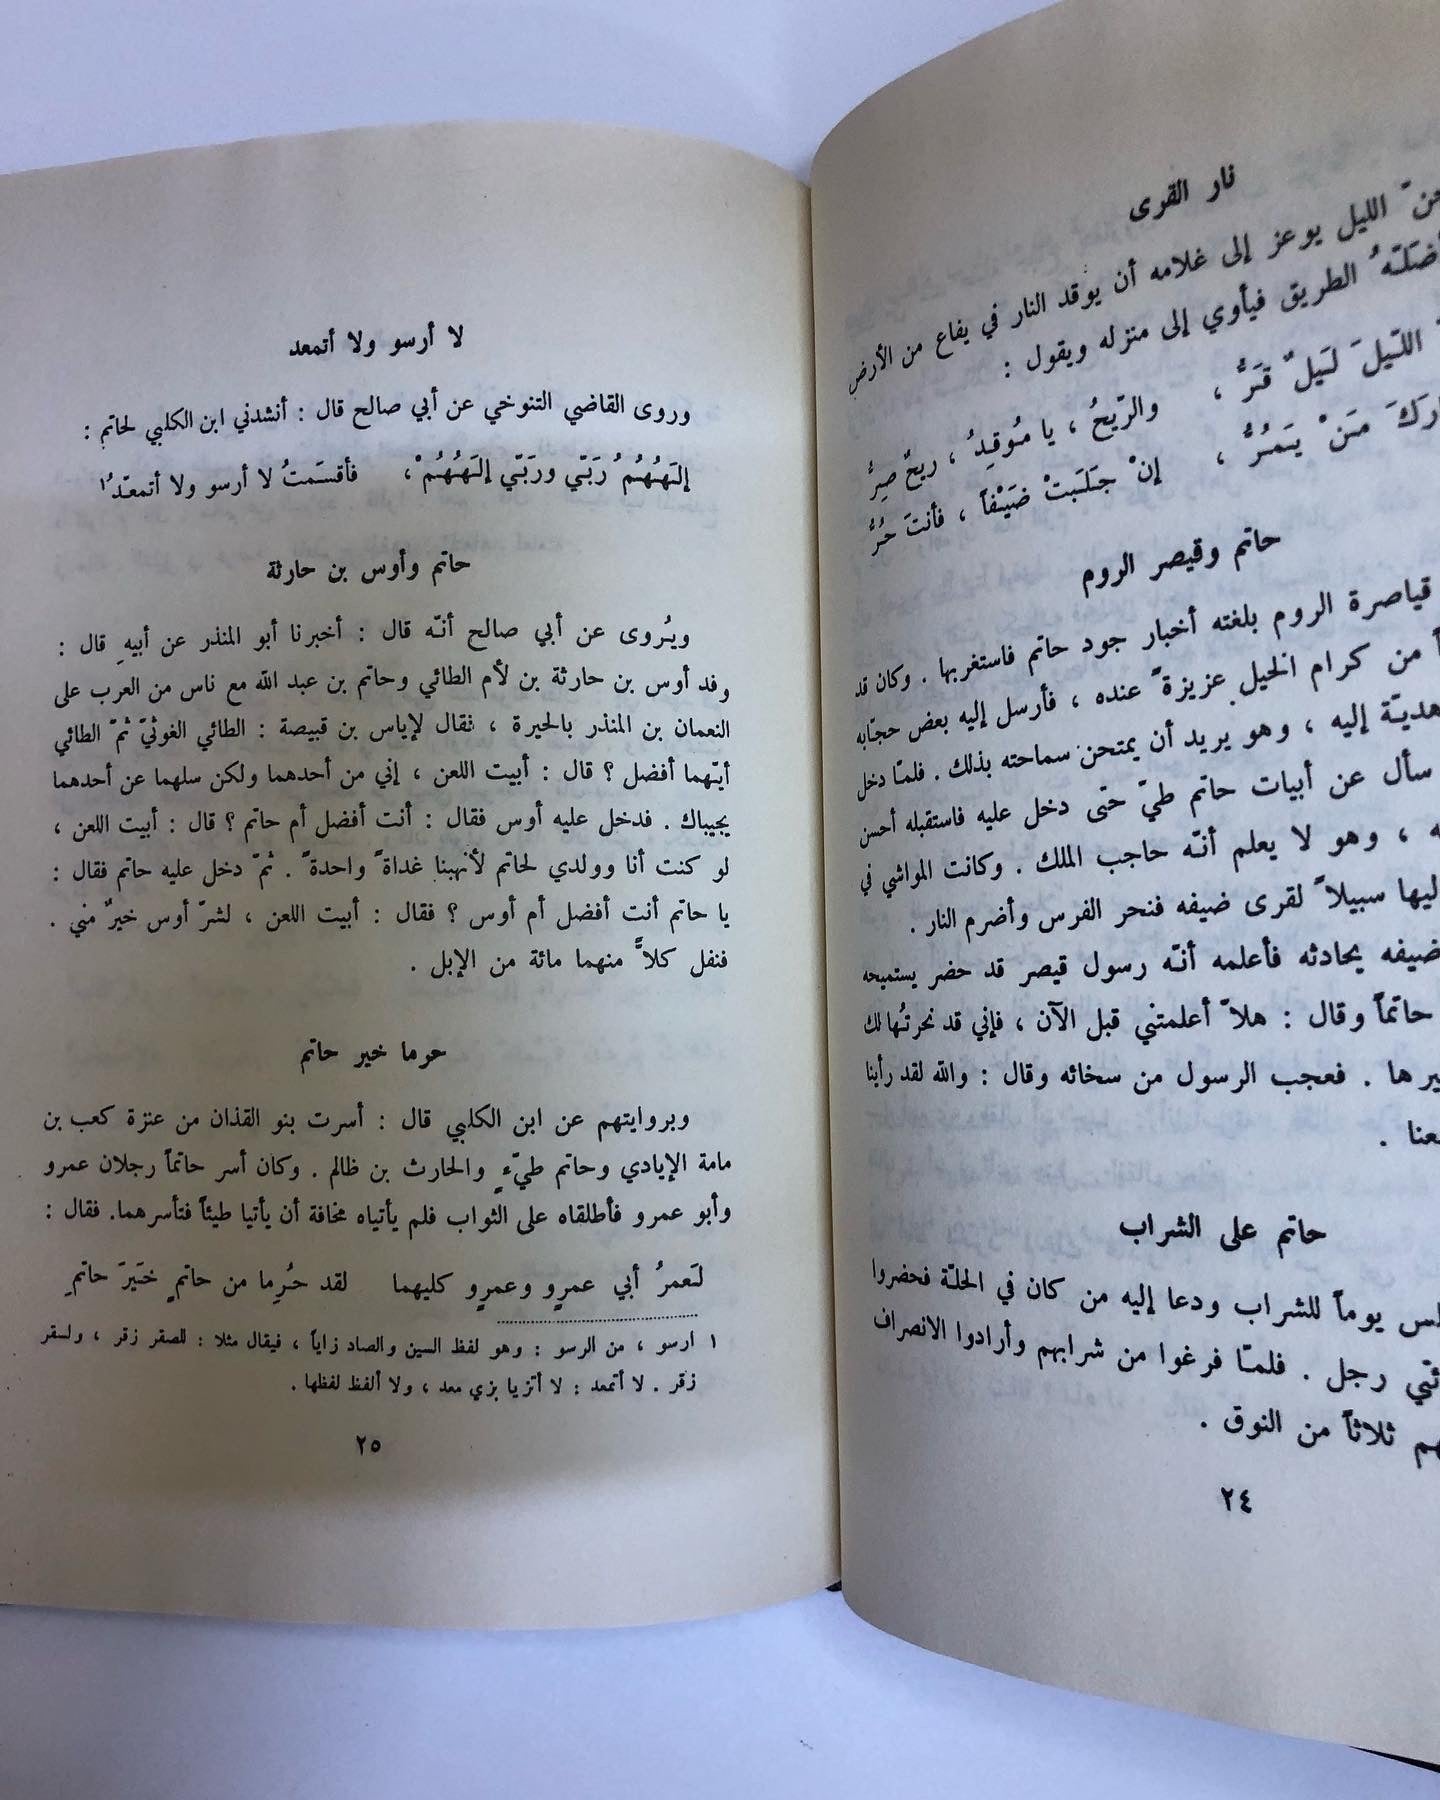 نار القرى
الليل يوعز إلى غلامه أن يوقد النار في يفاع من الأرض
الطريق فيأوي إلى منزله ويقول :
اللّيلَ لَيلٌ قَرُّ ، والرّيحُ ، يا مُوقِدُ ، ريحٌ صِرُّ
مَنْ يَمُرُّ ، إنْ جَلَبَتْ ضَيْفاً ، فأنتَ حُرُّ
حاتم وقيصر الروم
قياصرة الروم بلغته أخبار جود حاتم فاستغربها . وكان قد
من كرام الخيل عزيزةً عنده ، فأرسل إليه بعض حجّابه
هديّة إليه ، وهو يريد أن يمتحن سماحته بذلك . فلمّا دخل
سأل عن أبيات حاتم طيّ حتى دخل عليه فاستقبله أحسن
، وهو لا يعلم أنّه حاجب الملك . وكانت المواشي في
سبيلاً لقرى ضيفه فنحر الفرس وأضرم النار .
ضيفه يحادثه فأعلمه أنّه رسول قيصر قد حضر يستميحه
حاتماً وقال : هلاّ أعلمتني قبل الآن ، فإني قد نحرتُها لك
. فعجب الرسول من سخائه وقال : والله لقد رأينا
.
حاتم على الشراب
يوماً للشراب ودعا إليه من كان في الحلّة فحضروا
رجل . فلمّا فرغوا من شرابهم وأرادوا الانصراف
ثلاثاً من النوق .
٢٤
لا أرسو ولا أتمعد
وروى القاضي التنوخي عن أبي صالح قال : أنشدني ابن الكلبي لحاتم :
إلَهُهُمُ رَبّي ورَبّي إلَهُهُمْ ، فأقسَمتُ لا أرسو ولا أتمعّدُ١
حاتم وأوس بن حارثة
ويُروى عن أبي صالح أنّه قال : أخبرنا أبو المنذر عن أبيهِ قال :
وفد أوس بن حارثة بن لأم الطائي وحاتم بن عبد الله مع ناس من العرب على
النعمان بن المنذر بالحيرة ، فقال لإياس بن قبيصة : الطائي الغوثيّ ثمّ الطائي
أيّهما أفضل ؟ قال : أبيت اللعن ، إني من أحدهما ولكن سلهما عن أحدهما
يجيباك . فدخل عليه أوس فقال : أنت أفضل أم حاتم ؟ قال : أبيت اللعن ،
لو كنت أنا وولدي لحاتم لأنهبنا غداةً واحدةً . ثمّ دخل عليه حاتم فقال :
يا حاتم أنت أفضل أم أوس ؟ فقال : أبيت اللعن ، لشرّ أوس خيرٌ مني .
فنفل كلاًّ منهما مائة من الإبل .
حرما خير حاتم
وبروايتهم عن ابن الكلبي قال : أسرت بنو القذان من عنزة كعب بن
مامة الإيادي وحاتم طيّءٍ والحارث بن ظالم . وكان أسر حاتماً رجلان عمرو
وأبو عمرو فأطلقاه على الثواب فلم يأتياه مخافة أن يأتيا طيئاً فتأسرهما. فقال :
لَعمرُ أبي عمرٍو وعمرٍو كليهما لقد حُرِما من حاتمٍ خَيرَ حاتمِ
١ أرسو ، من الرسو : وهو لفظ السين والصاد زاياً ، فيقال مثلا : للصقر زقر ، ولسقر
زقر . لا أتمعد : لا أتزيا بزي معد ، ولا ألفظ لفظها .
٢٥